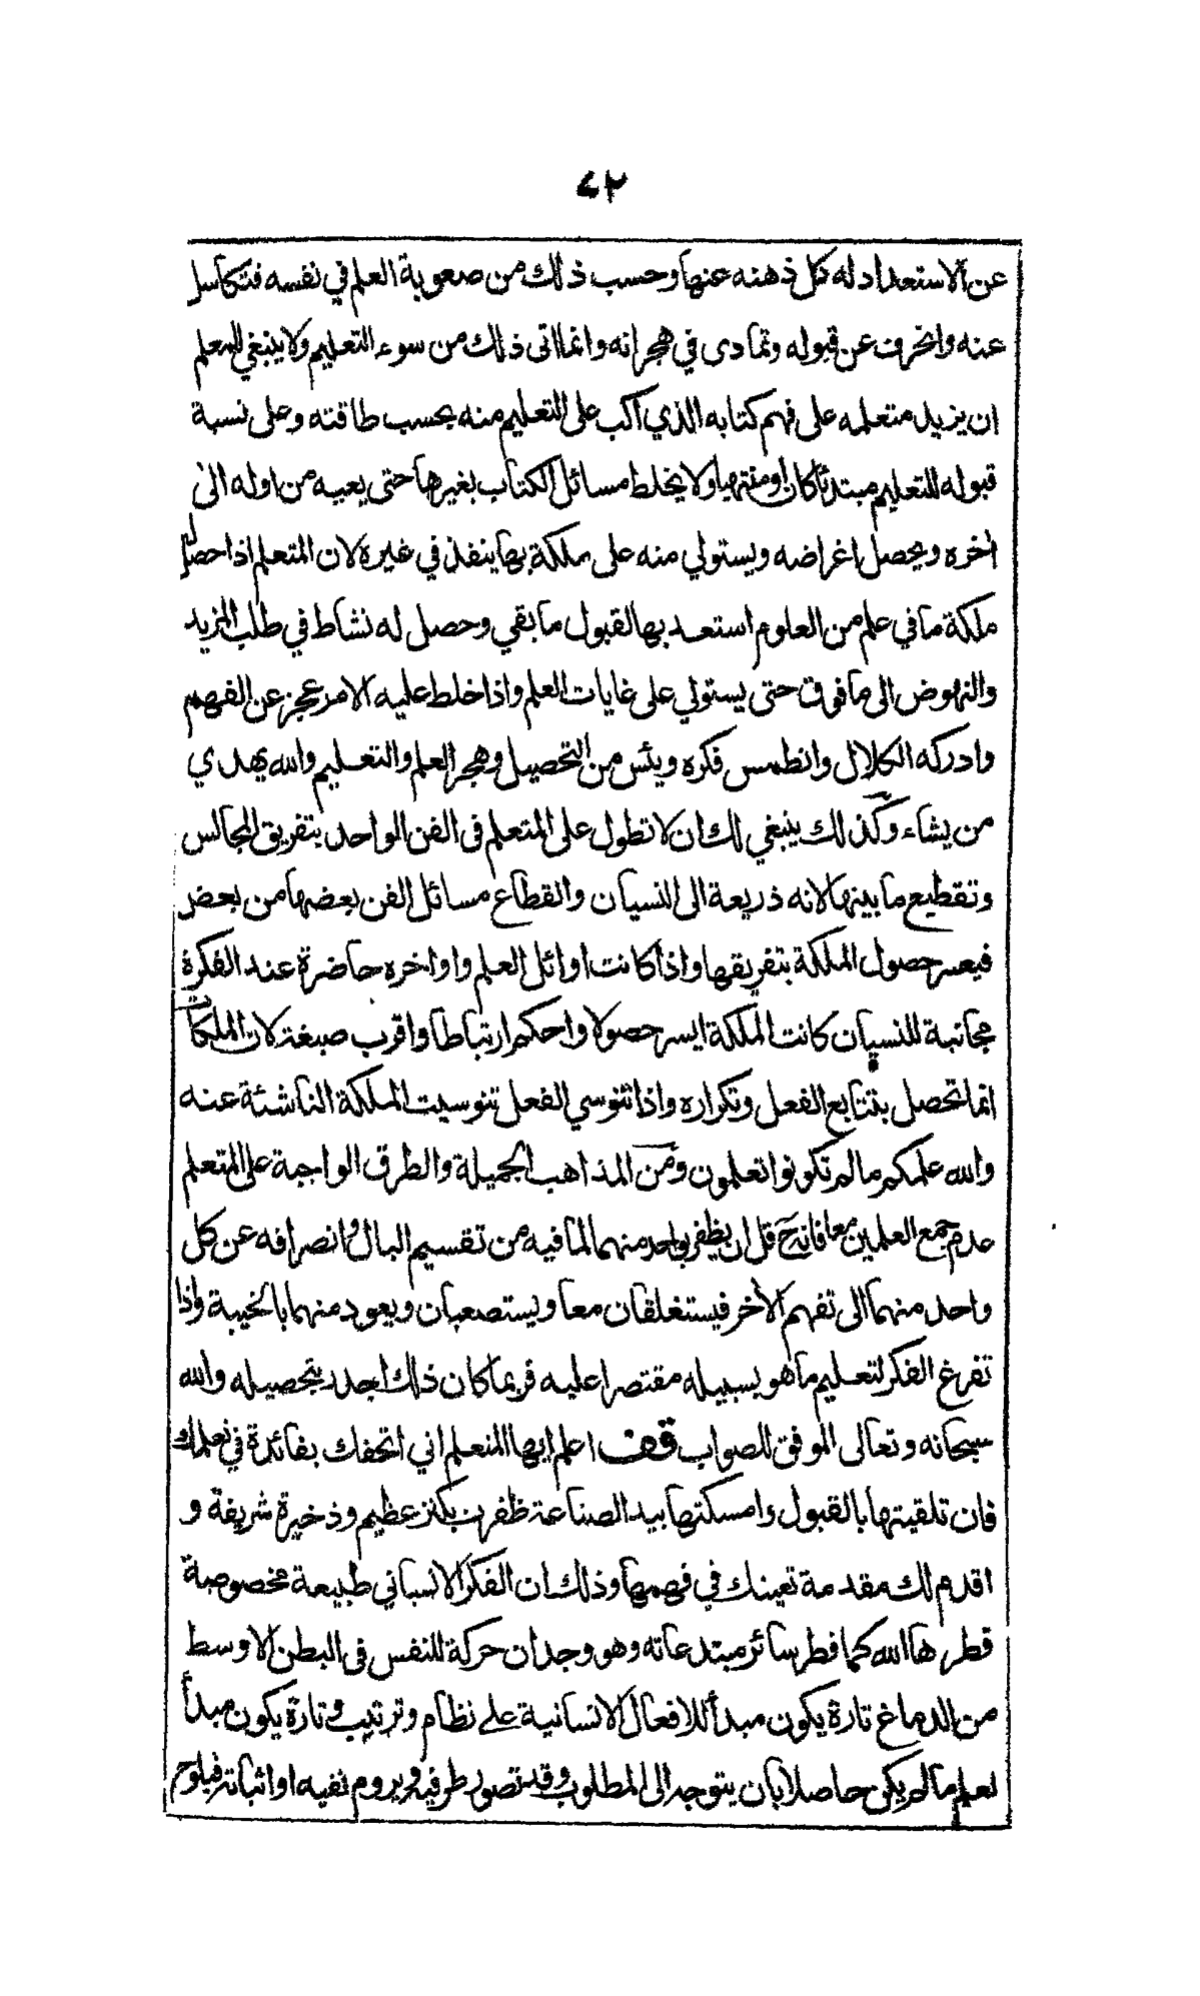 ٤٢
عن الاستعداد له كل ذهنه عنها وحسب ذلك من صعوبة العلم في نفسه فتكاسل
عنه وانحرف عن قبوله وتمادى في هجرانه وانما اتى ذلك من سوء التعليم ولا ينبغي للمعلم
ان يزيد متعلمه على فهم كتابه الذي اكب على التعليم منه بحسب طاقته وعلى نسبة
قبوله للتعليم مبتدئا كان او منتهيا ولا يخلط مسائل الكتاب بغيرها حتى يعيه من اوله الى
اخره ويحصل اغراضه ويستولي منه على ملكة بها ينفذ في غيره لان المتعلم اذا حصل
ملكة ما في علم من العلوم استعد بها لقبول ما بقي وحصل له نشاط في طلب المزيد
والنهوض الى ما فوق حتى يستولي على غايات العلم واذا خلط عليه الامر عجز عن الفهم
وادركه الكلال وانطمس فكره ويئس من التحصيل وهجر العلم والتعليم والله يهدي
من يشاء وكذلك ينبغي لك ان لا تطول على المتعلم في الفن الواحد بتفريق المجالس
وتقطيع ما بينها لانه ذريعة الى النسيان وانقطاع مسائل الفن بعضها من بعض
فيعسر حصول الملكة بتفريقها واذا كانت اوائل العلم واواخره حاضرة عند الفكرة
مجانبة للنسيان كانت الملكة ايسر حصولا واحكم ارتباطا واقرب صبغة لان الملكات
انما تحصل بتتابع الفعل وتكراره واذا تنوسي الفعل تنوسيت الملكة الناشئة عنه
والله علمكم ما لم تكونوا تعلمون ومن المذاهب الجميلة والطرق الواجبة على المتعلم
عدم جمع العلمين معا فانه ح قل ان يظفر بواحد منهما لما فيه من تقسيم البال وانصرافه عن كل
واحد منهما الى تفهم الأخر فيستغلقان معا ويستصعبان ويعود منهما بالخيبة واذا
تفرغ الفكر لتعليم ما هو بسبيله مقتصرا عليه فربما كان ذلك اجدر بتحصيله والله
سبحانه وتعالى الموفق للصواب قف اعلم ايها المتعلم اني اتحفك بفائدة في تعلمك
فان تلقيتها بالقبول وامسكتها بيد الصناعة ظفرت بكنز عظيم وذخيرة شريفة و
اقدم لك مقدمة تعينك في فهمها وذلك ان الفكر الانساني طبيعة مخصوصة
فطرها الله كما فطر سائر مبتدعاته وهو وجدان حركة للنفس في البطن الاوسط
من الدماغ تارة يكون مبدأ للافعال الانسانية على نظام وترتيب وتارة يكون مبدأ
لعلم ما لم يكن حاصلا بان يتوجه الى المطلوب وقد تصور طرفيه ويروم نفيه او اثباته فيلوح